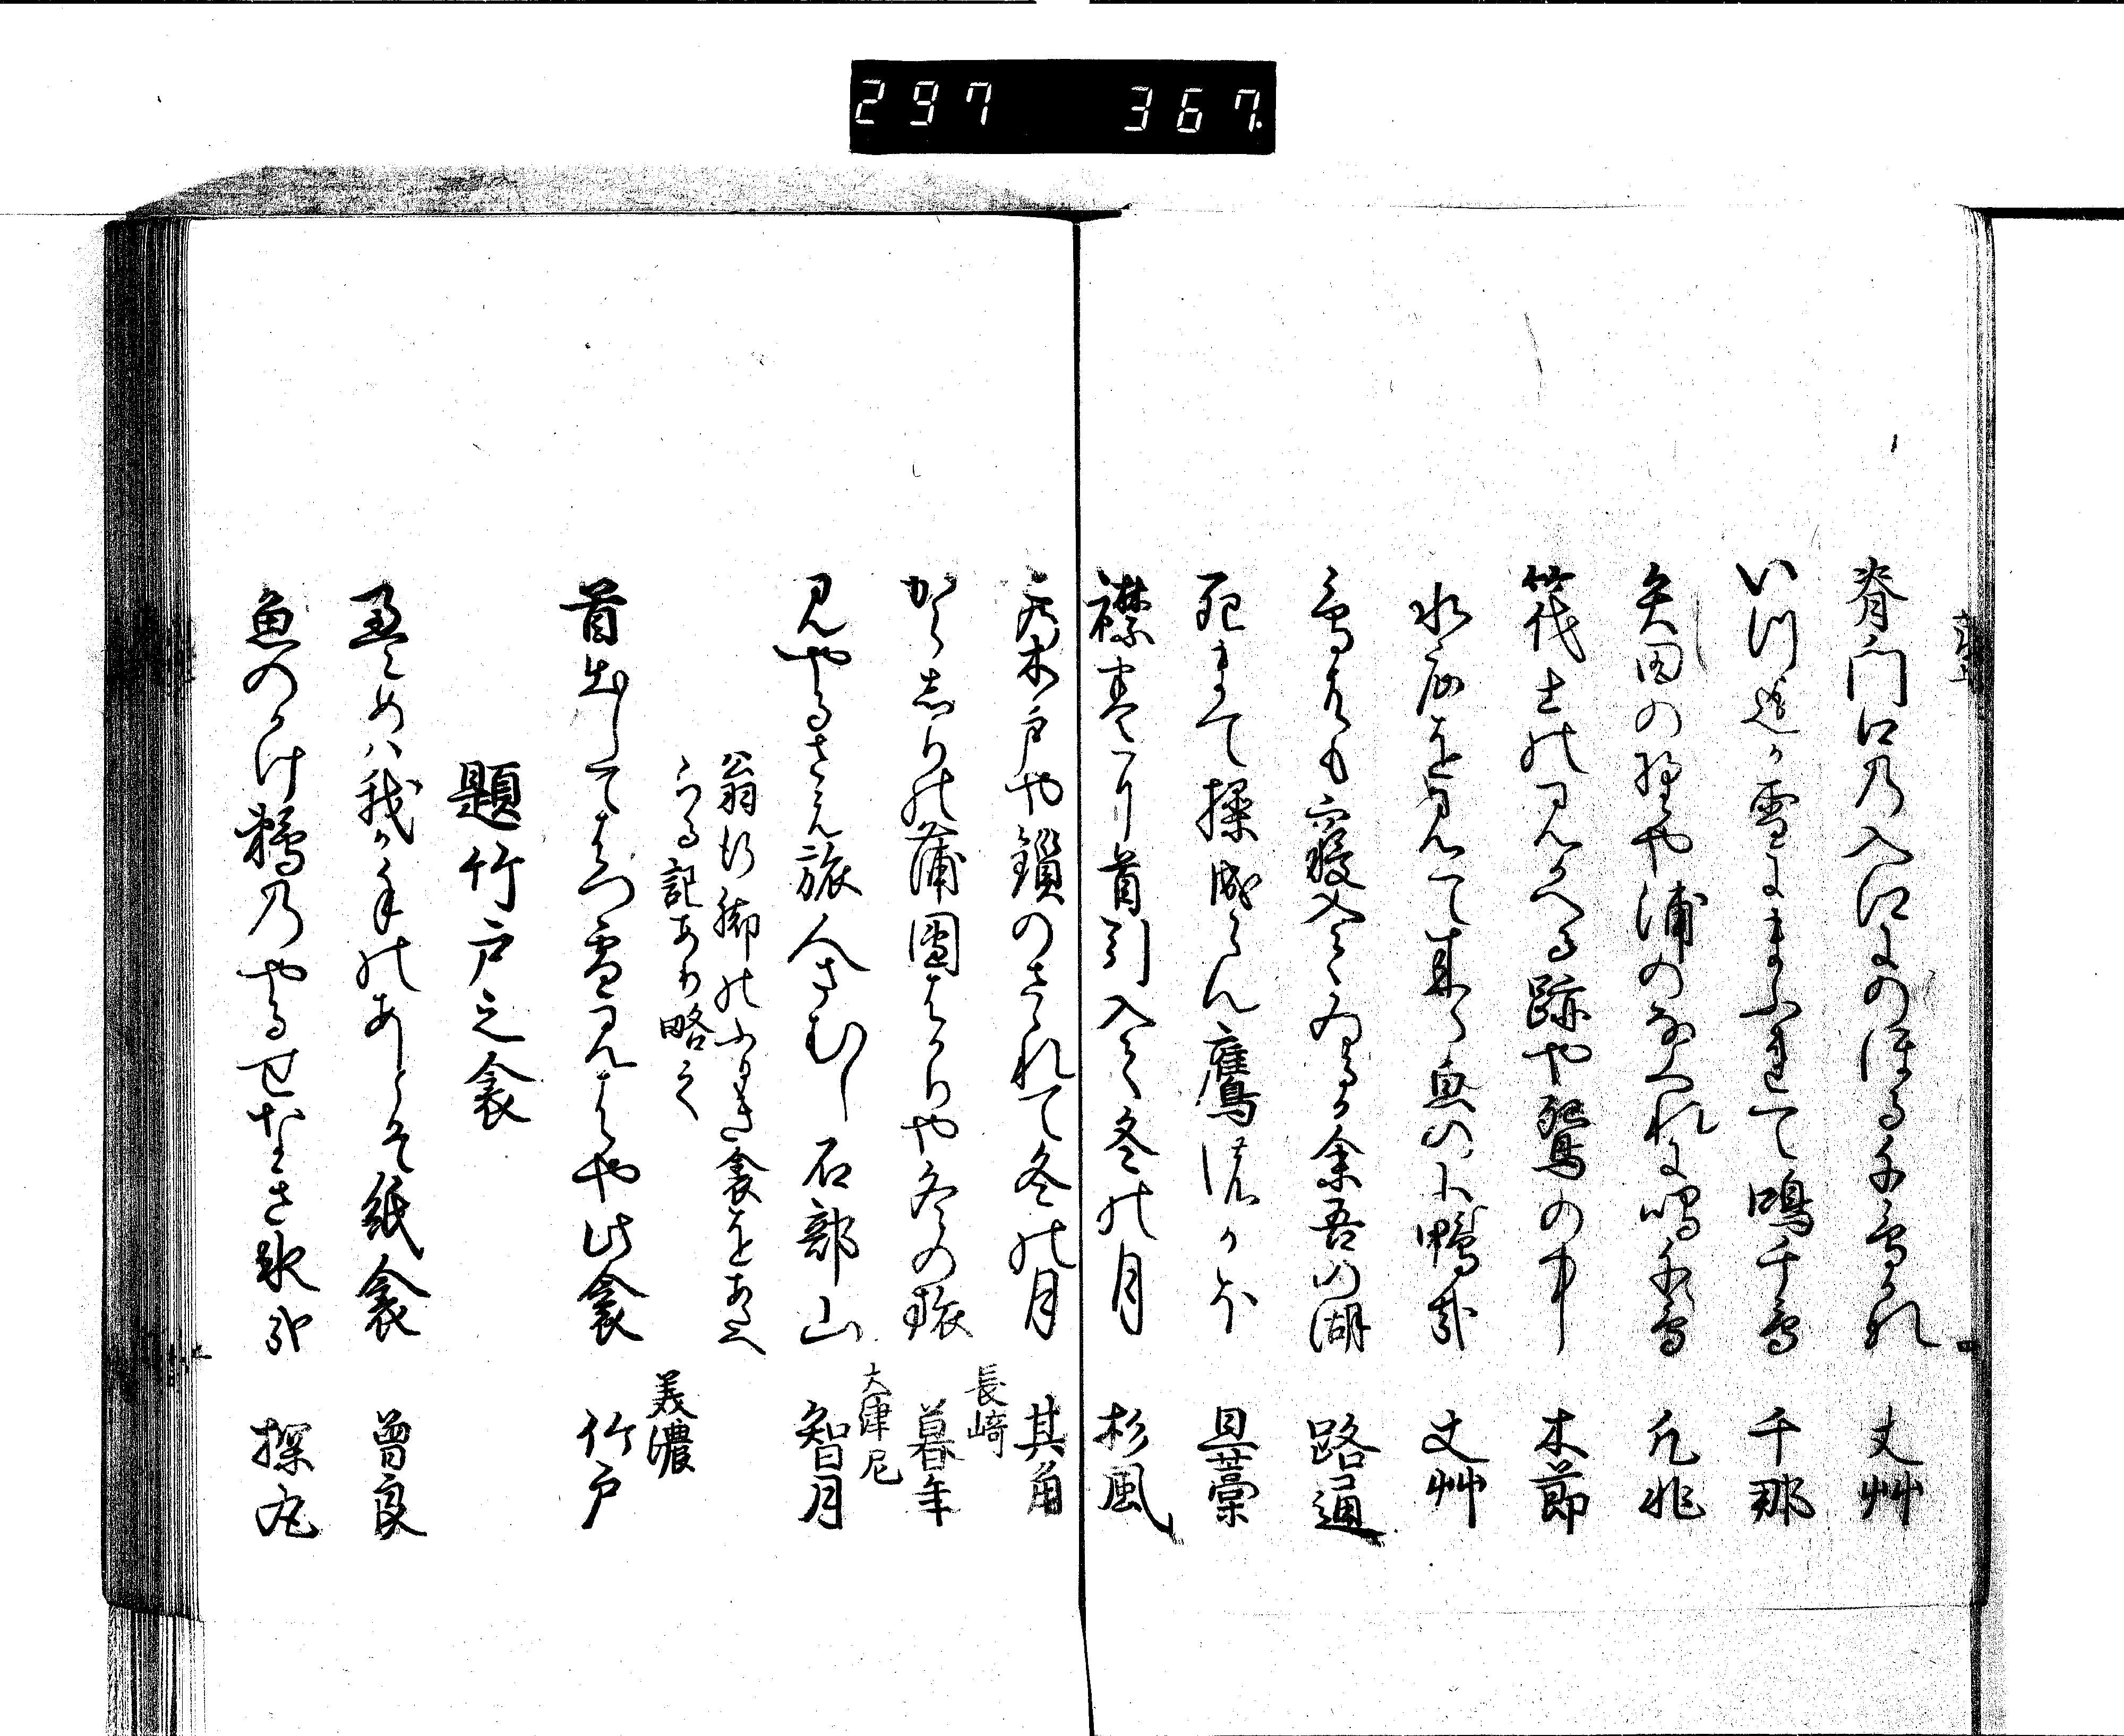 297 367.
脊門口乃入江にのほる千鳥かな 丈艸
いつ迄か雪にまふれて鳴千鳥 千那
矢田の野や浦のなくれに鳴千鳥 凡兆
筏士の見かへる跡や鴛の中 木節
水底を見て来た貌の小鴨哉 丈艸
鳥共も寝入てゐるか余吾の湖 路通
死まて操成らん鷹のかほ 旦藁
襟巻に首引入て冬の月 杉風
此木戸や鎖のさゝれて冬の月 其角
からしりの蒲團はかりや冬の旅 長崎 暮年
見やるさえ旅人さむし石部山 大津尼 智月
翁行脚のふるき衾をあたへ
らる記あり略之
首出してはつ雪見はや此衾 美濃 竹戸
題竹戸之衾
畳めは我か手のあとそ紙衾 曽良
魚のかけ鵜乃やるせなき氷哉 探丸